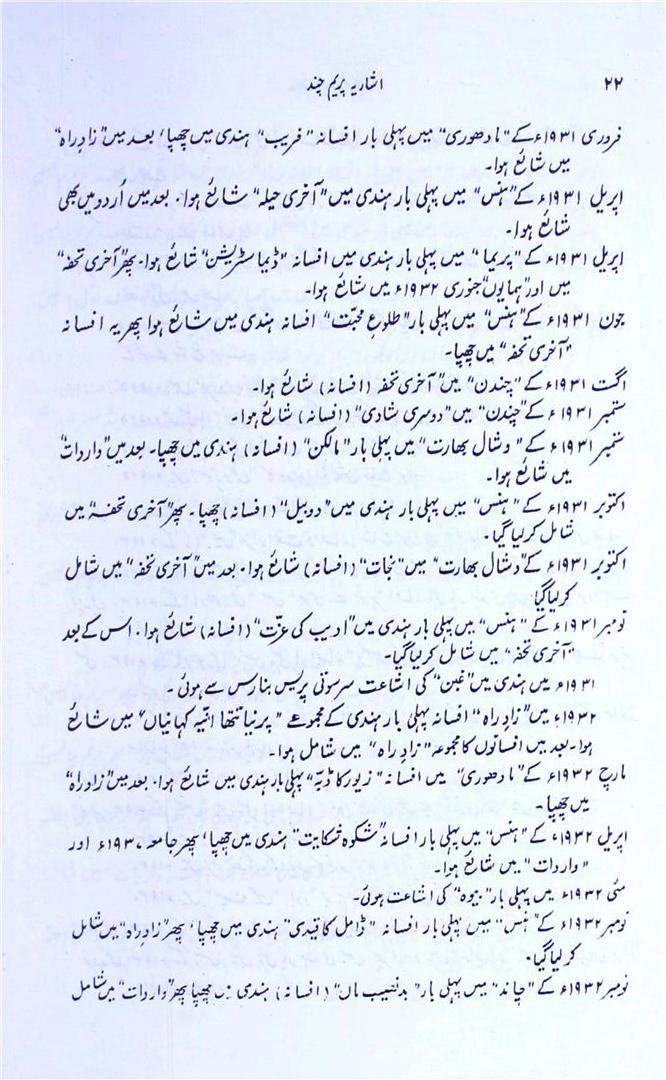 ۲۲ اشاریہ پریم چند
فروری ۱۹۳۱ء کے "مادھوری" میں پہلی بار افسانہ "فریب" ہندی میں چھپا، بعد میں "زادِ راہ"
میں شائع ہوا۔
اپریل ۱۹۳۱ء کے "ہنس" میں پہلی بار ہندی میں "آخری حیلہ" شائع ہوا۔ بعد میں اُردو میں بھی
شائع ہوا۔
اپریل ۱۹۳۱ء کے "پریما" میں پہلی بار ہندی میں افسانہ "ڈیمانسٹریشن" شائع ہوا۔ پھر "آخری تحفہ"
میں اور "ہمایوں" جنوری ۱۹۳۲ء میں شائع ہوا۔
جون ۱۹۳۱ء کے "ہنس" میں پہلی بار "طلوعِ محبت" افسانہ ہندی میں شائع ہوا پھر یہ افسانہ
"آخری تحفہ" میں چھپا۔
اگست ۱۹۳۱ء کے "چندن" میں "آخری تحفہ" (افسانہ) شائع ہوا۔
ستمبر ۱۹۳۱ء کے "چندن" میں "دوسری شادی" (افسانہ) شائع ہوا۔
ستمبر ۱۹۳۱ء کے "وشال بھارت" میں پہلی بار "مالکن" (افسانہ) ہندی میں چھپا۔ بعد میں "واردات"
میں شائع ہوا۔
اکتوبر ۱۹۳۱ء کے "ہنس" میں پہلی بار ہندی میں "دو بیل" (افسانہ) چھپا۔ پھر "آخری تحفہ" میں
شامل کر لیا گیا۔
اکتوبر ۱۹۳۱ء کے "وشال بھارت" میں "نجات" (افسانہ) شائع ہوا۔ بعد میں "آخری تحفہ" میں شامل
کر لیا گیا۔
نومبر ۱۹۳۱ء کے "ہنس" میں پہلی بار ہندی میں "ادیب کی عزت" (افسانہ) شائع ہوا۔ اس کے بعد
"آخری تحفہ" میں شامل کر لیا گیا۔
۱۹۳۱ء میں ہندی میں "غبن" کی اشاعت سرسوتی پریس بنارس سے ہوئی۔
۱۹۳۲ء میں "زادِ راہ" افسانہ پہلی بار ہندی کے مجموعے "پرنیا تتھا انیہ کہانیاں" میں شائع
ہوا۔ بعد میں افسانوں کا مجموعہ "زادِ راہ" میں شامل ہوا۔
مارچ ۱۹۳۲ء کے "مادھوری" میں افسانہ "زیور کا ڈبہ" پہلی بار ہندی میں شائع ہوا۔ بعد میں "زادِ راہ"
میں چھپا۔
اپریل ۱۹۳۲ء کے "ہنس" میں پہلی بار افسانہ "شکوہ شکایت" ہندی میں چھپا، پھر جامعہ، ۱۹۳۷ء اور
"واردات" میں شائع ہوا۔
مئی ۱۹۳۲ء میں پہلی بار "بیوہ" کی اشاعت ہوئی۔
نومبر ۱۹۳۲ء کے "ہنس" میں پہلی بار افسانہ "ڈامل کا قیدی" ہندی میں چھپا، پھر "زادِ راہ" میں شامل
کر لیا گیا۔
نومبر ۱۹۳۲ء کے "چاند" میں پہلی بار "بدنصیب ماں" (افسانہ) ہندی میں چھپا پھر "واردات" میں شامل